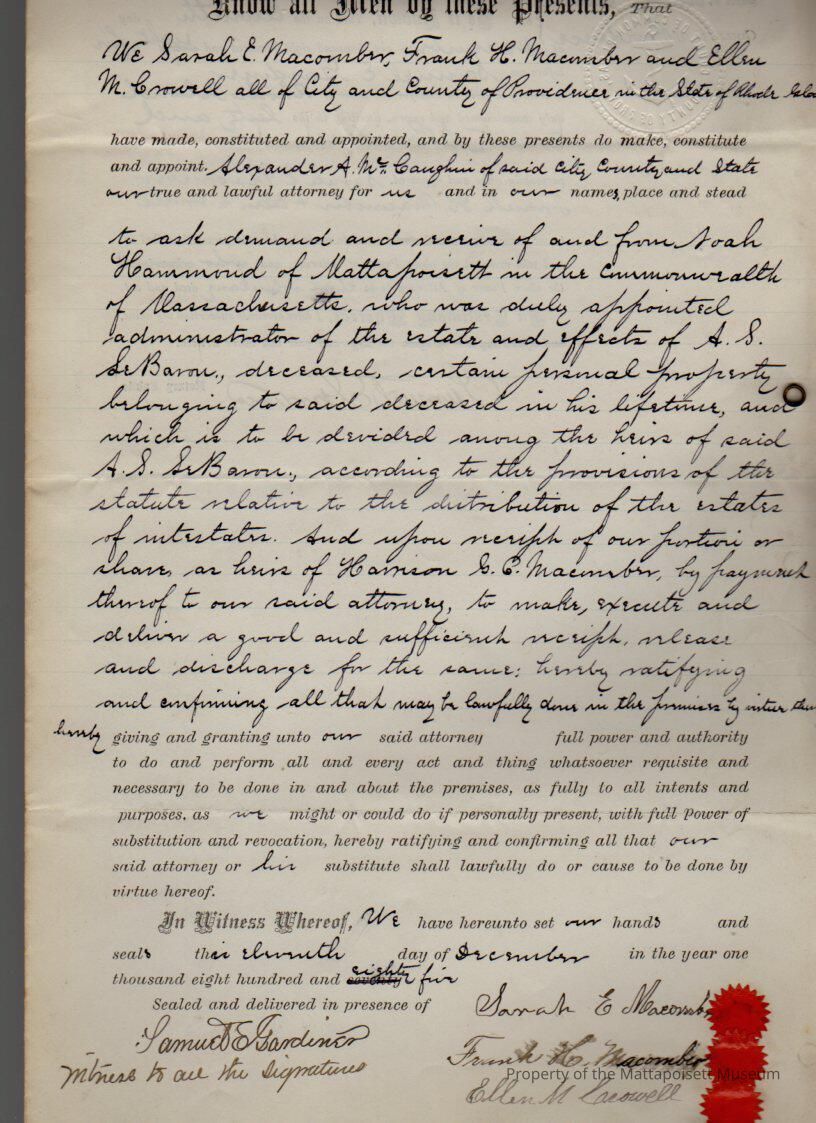 Know all Men by these Presents, That
We Sarah E. Macomber, Frank H. Macomber and Ellen
M. Crowell all of City and County of Providence in the State of Rhode Island
have made, constituted and appointed, and by these presents do make, constitute
and appoint. Alexander A. Mc. Caughin of said City County and State
our true and lawful attorney for us and in our names, place and stead
to ask demand and receive of and from Noah
Hammond of Mattapoisett in the Commonwealth
of Massachusetts. who was duly appointed
administrator of the estate and effects of A. S.
LeBaron., deceased, certain personal property
belonging to said deceased in his lifetime, and
which is to be devided among the heirs of said
A. S. LeBaron., according to the provisions of the
statute relative to the distribution of the estates
of intestates. And upon receipt of our portion or
share, as heirs of Harrison G. O. Macomber, by payment
thereof to our said attorney, to make, execute and
deliver a good and sufficient receipt, release
and discharge for the same; hereby ratifying
and confirming all that may be lawfully done in the premises by virtue
hereby giving and granting unto our said attorney full power and authority
to do and perform all and every act and thing whatsoever requisite and
necessary to be done in and about the premises, as fully to all intents and
purposes, as we might or could do if personally present, with full Power of
substitution and revocation, hereby ratifying and confirming all that our
said attorney or his substitute shall lawfully do or cause to be done by
virtue hereof.
In Witness Whereof, We have hereunto set our hands and
seals this eleventh day of December in the year one
thousand eight hundred and seventy eighty five
Sealed and delivered in presence of
Sarah E Macomber
Samuel E Gardiner
Witness to all the signatures
Frank H. Macomber
Property of the Mattapoisett Museum
Ellen M Crowell